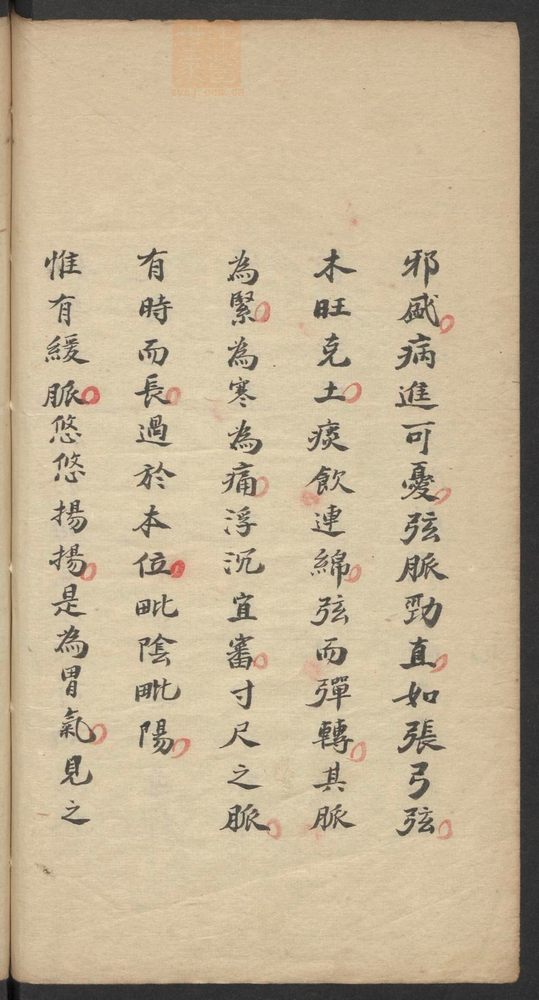 邪盛病進可憂弦脈勁直如張弓弦
木旺克土痰飲連綿弦而彈轉其脈
為緊為寒為痛浮沉宜審寸尺之脈
有時而長過於本位毗陰毗陽
惟有緩脈悠悠揚揚是為胃氣見之